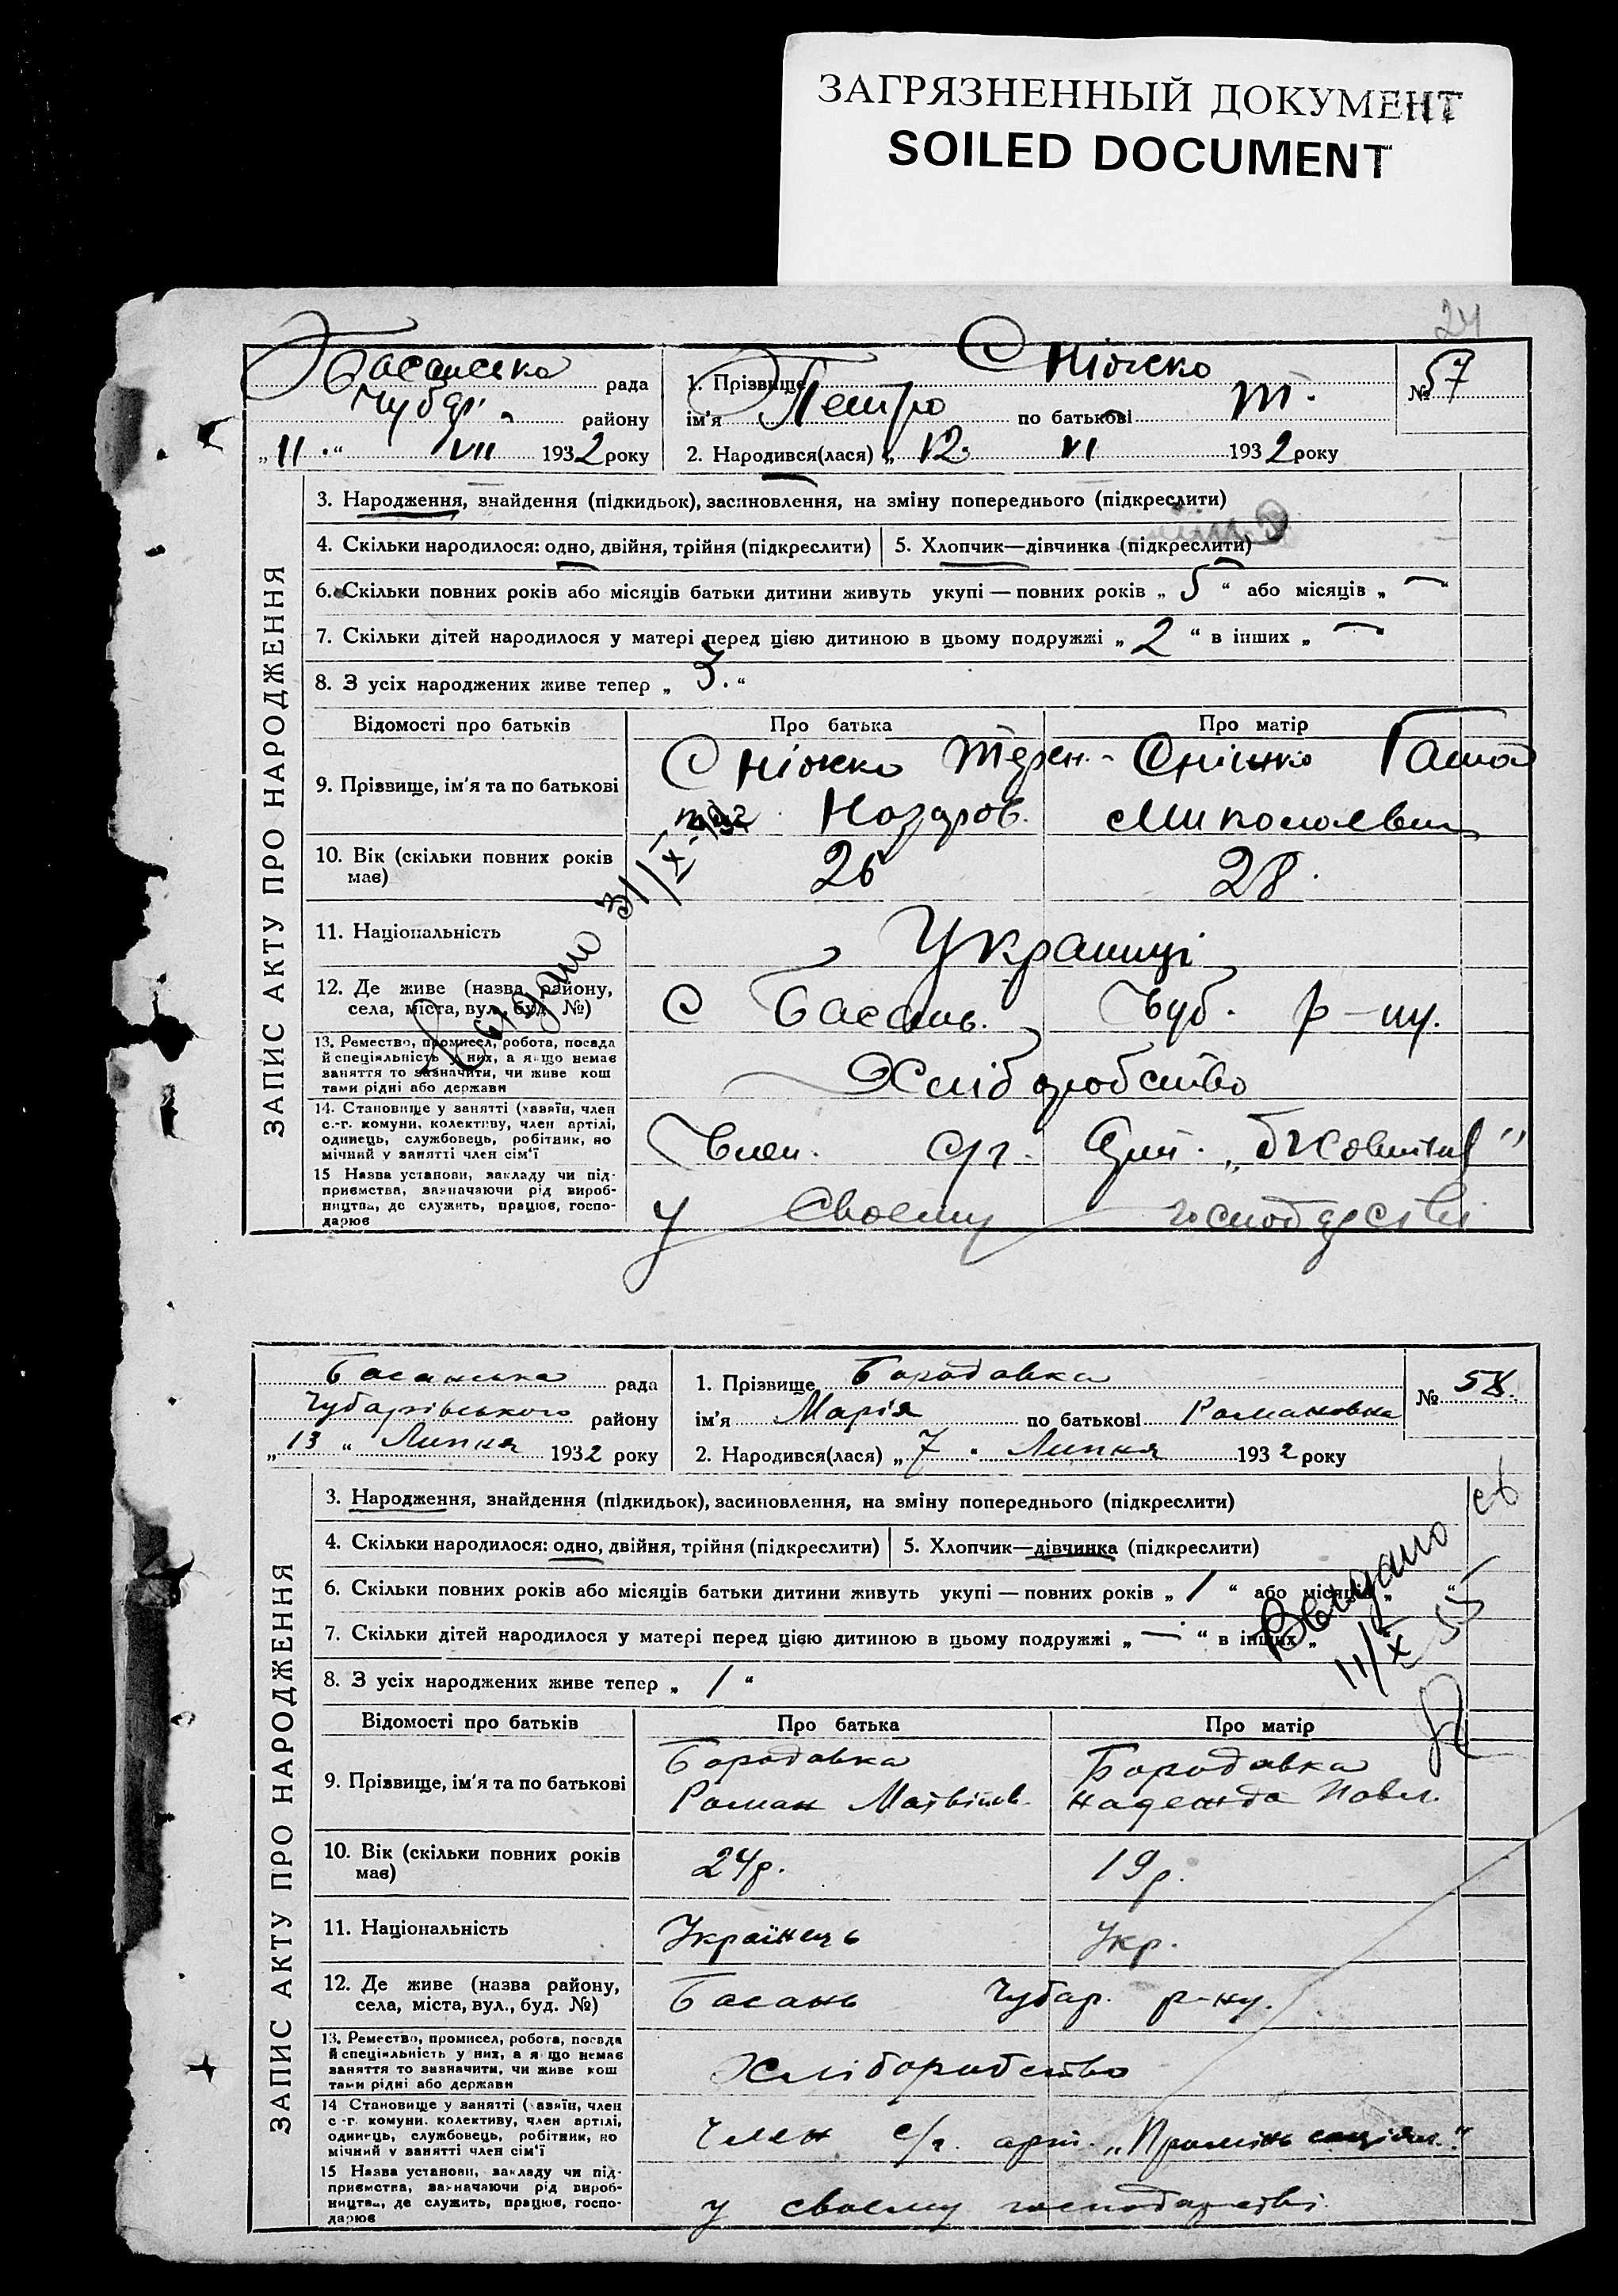 ЗАГРЯЗНЕННЫЙ ДОКУМЕНТ
SOILED DOCUMENT
24
ЗАПИС АКТУ ПРО НАРОДЖЕННЯ
Басанська рада
Чубар. району
„11.“ VII 1932 року
1. Прізвище Сніжко
ім'я Петро по батькові Т.
№ 57
2. Народився(лася) „12. VI 1932 року
3. Народження, знайдення (підкидьок), засиновлення, на зміну попереднього (підкреслити)
4. Скільки народилося: одно, двійня, трійня (підкреслити)
5. Хлопчик—дівчинка (підкреслити)
6. Скільки повних років або місяців батьки дитини живуть укупі — повних років „5“ або місяців „—“
7. Скільки дітей народилося у матері перед цією дитиною в цьому подружжі „2“ в інших „—
8. З усіх народжених живе тепер „3.“
Відомості про батьків
Про батька
Про матір
9. Прізвище, ім'я та по батькові
Сніжко Терен-
Назаров.
Сніжко Ганна
Миколаевн
10. Вік (скільки повних років має)
26
28.
11. Національність
Українці
12. Де живе (назва району, села, міста, вул., буд. №)
С Басань. Чуб. р-ну.
13. Ремество, промисел, робота, посада й спеціяльність у них, а якщо немає заняття то зазначити, чи живе кош тами рідні або держави
Хліборобство
14. Становище у занятті (хазяїн, член с.-г. комуни, колективу, член артілі, одинець, службовець, робітник, по мічний у занятті член сім'ї
Член. с/г. Арт.
15 Назва установи, закладу чи підприємства, зазначаючи рід виробництва, де служить, працює, господарює
У своєму господарстві
Выдано 31/X-
ЗАПИС АКТУ ПРО НАРОДЖЕННЯ
Басанська рада
Чубарівського району
„13“ Липня 1932 року
1. Прізвище Бородавка
ім'я Марія по батькові Романовна
№ 58.
2. Народився(лася) „7“ Липня 1932 року
3. Народження, знайдення (підкидьок), засиновлення, на зміну попереднього (підкреслити)
4. Скільки народилося: одно, двійня, трійня (підкреслити)
5. Хлопчик—дівчинка (підкреслити)
6. Скільки повних років або місяців батьки дитини живуть укупі — повних років „1“ або місяців „
7. Скільки дітей народилося у матері перед цією дитиною в цьому подружжі „—“ в інших „
8. З усіх народжених живе тепер „1“
Выдано
11/X 55
Відомості про батьків
Про батька
Про матір
9. Прізвище, ім'я та по батькові
Бородавка
Роман Матвійов.
Бородавка
Надежда Павл.
10. Вік (скільки повних років має)
24р.
19р.
11. Національність
Українець
Укр.
12. Де живе (назва району, села, міста, вул., буд. №)
Басань Чубар. р-ну.
13. Ремество, промисел, робота, посада й спеціяльність у них, а якщо немає заняття то зазначити, чи живе кош тами рідні або держави
Хліборобство
14 Становище у занятті (хазяїн, член с-г. комуни. колективу, член артілі, одинець, службовець, робітник, по мічний у занятті член сім'ї
Член с/г. арт. „Промінь соціял.“
15 Назва установи, закладу чи підприємства, зазначаючи рід виробництва, де служить, працює, господарює
у своєму господарстві.